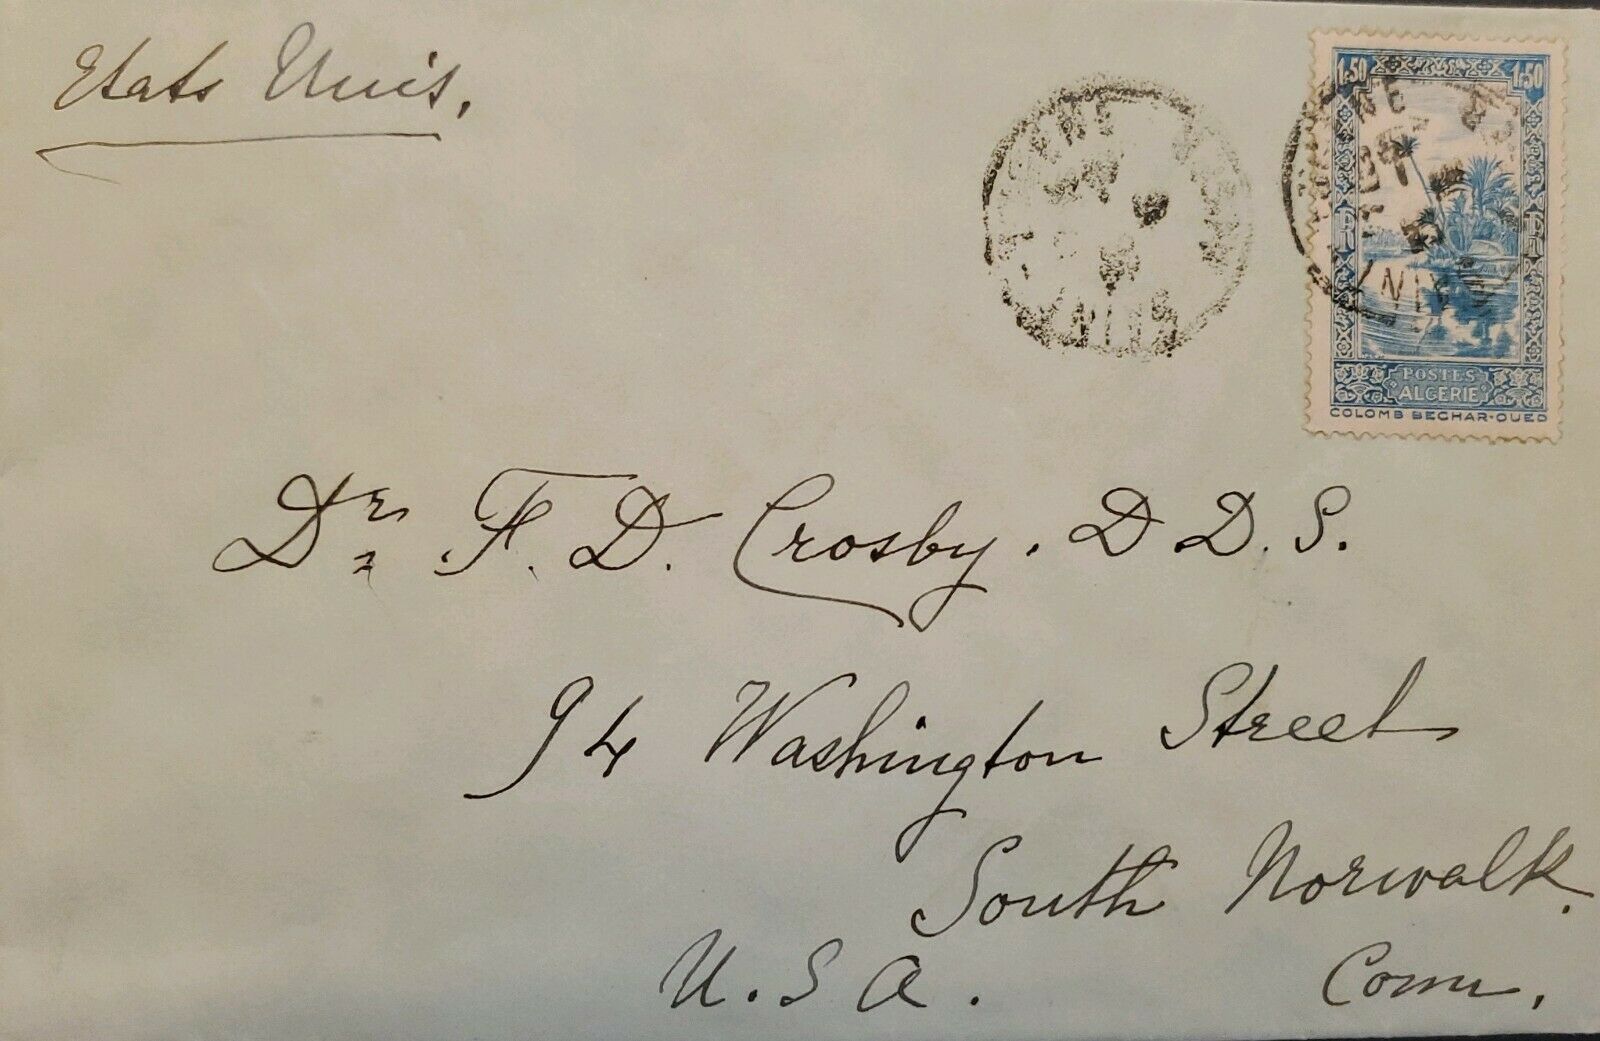 Etats Unis,
1.50 1.50
POSTES
ALGERIE
COLOMB BECHAR-OUED
Dr. F. D. Crosby. D D. S.
94 Washington Street
South Norwalk.
U. S A. Conn.